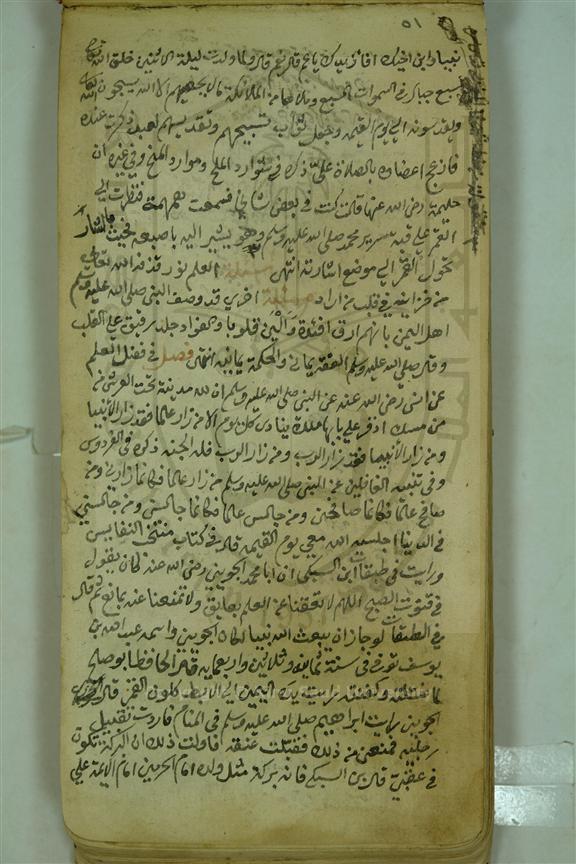 ٥١
نبيا وابن اخيك افما نريدك يا عم قال نعم قال ولما ولدت ليلة الاثنين خلق الله تعالى
سبع جبال في السموات السبع وملاها من الملائكة لا يحصيهم الا الله يسبحون الله تعالى
ويقدسونه الى يوم القيمة وجعل ثواب تسبيحهم وتقديسهم لعبد ذكرت عنده
فازعج اعضاوه بالصلاة علي ذكره في شوارد الملح وموارد المنح وفي غيره ان
حليمة رضي الله عنها قالت كنت في بعض فسمعت همهمة فنظرت الى
القمر على قبة سرير محمد صلى الله عليه وسلم وهو يشير اليه باصبعه فحيث ما اشار
تحول القمر الى موضع اشارته انتهى مسئلة العلم نور قذفه الله تعالى
من خزاينه في قلب من اراد مسئلة اخرى قد وصف النبي صلى الله عليه وسلم
اهل اليمن بانهم ارق افئدة وألين قلوبا والفواد جلد رقيق على القلب
وقال صلى الله عليه وسلم الفقه يماني والحكمة يمانية انتهى فصل في فضل العلم
عن انس رضي الله عنه عن النبي صلى الله عليه وسلم ان لله مدينة تحت العرش من
من مسك اذفر على بابها ملك ينادي كل يوم الا من زار عالما فقد زار الأنبيا
ومن زار الأنبيا فقد زار الرب ومن زار الرب فله الجنة ذكره في الفردوس
وفي تنبيه الغافلين عن النبي صلى الله عليه وسلم من زار عالما فكانما زارني ومن
صافح عالما فكانما صافحني ومن جالس عالما فكانما جالسني ومن جالسني
في الدنيا اجلسه الله معي يوم القيمة قال في كتاب منتخب النفايس
ورايت في طبقات ابن السبكي ان ابا محمد الجويني رضي الله عنه كان يقول
في قنوت الصبح اللهم لا تعقنا عن العلم بعايق ولا تمنعنا عنه بمانع ثم قال
في الطبقات لو جاز ان يبعث الله نبيا لكان الجويني واسمه عبد الله بن
يوسف توفي في سنة ثمانية وثلاثين واربعمايه قال الحافظ ابو صالح
لما غسلته وكفنته رايت يده اليمين الى الابط كلون القمر قال
الجويني رايت ابراهيم صلى الله عليه وسلم في المنام فاردت تقبيل
رجليه فمنعني من ذلك فقبلت عقبه فاولت ذلك ان البركة تكون
في عقبي قال بن السبكي فاي بركة مثل ولده امام الحرمين امام الايمة على